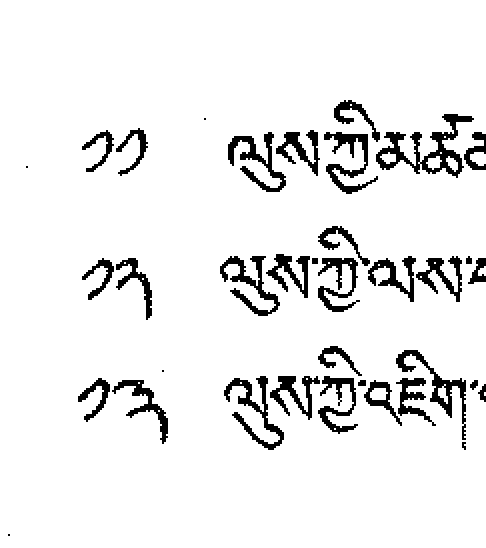 ༡༡ ལུས་ཀྱི་མཚན
༡༢ ལུས་ཀྱི་ལས་
༡༣ ལུས་ཀྱི་འཇིག་